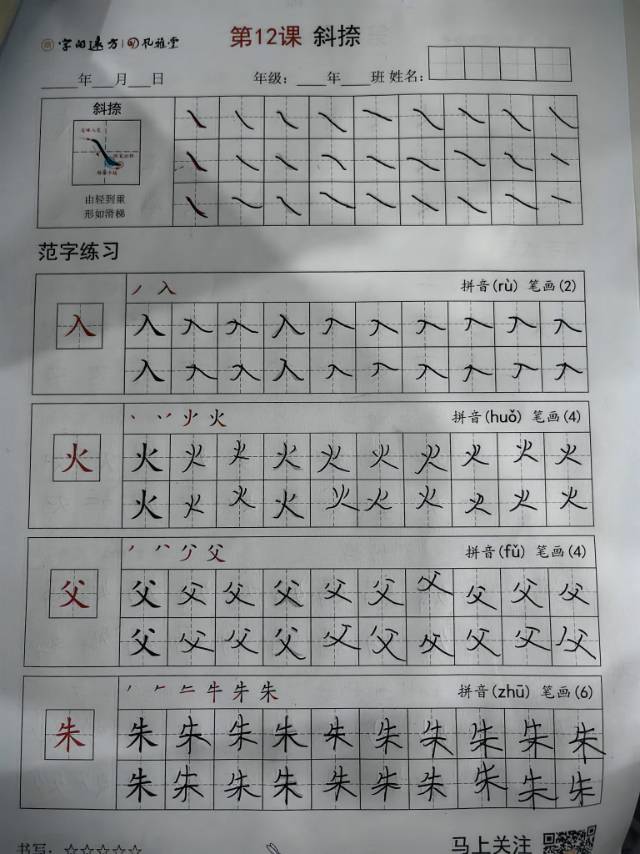 字的远方 风雅堂
第12课 斜捺
年 月 日 年级: 年 班 姓名:
斜捺
由轻到重
形如滑梯
范字练习
丿 入 拼音(rù) 笔画(2)
入 入 入 入 入 入 入 入 入 入 入
入 入 入 入 入 入 入 入 入 入
火 火 拼音(huǒ) 笔画(4)
火 火 火 火 火 火 火 火 火 火 火
火 火 火 火 火 火 火 火 火 火
父 拼音(fǔ) 笔画(4)
父 父 父 父 父 父 父 父 父 父 父
父 父 父 父 父 父 父 父 父 父
牛 朱 拼音(zhū) 笔画(6)
朱 朱 朱 朱 朱 朱 朱 朱 朱 朱 朱
朱 朱 朱 朱 朱 朱 朱 朱 朱 朱
书写: ☆☆☆☆☆ 马上关注